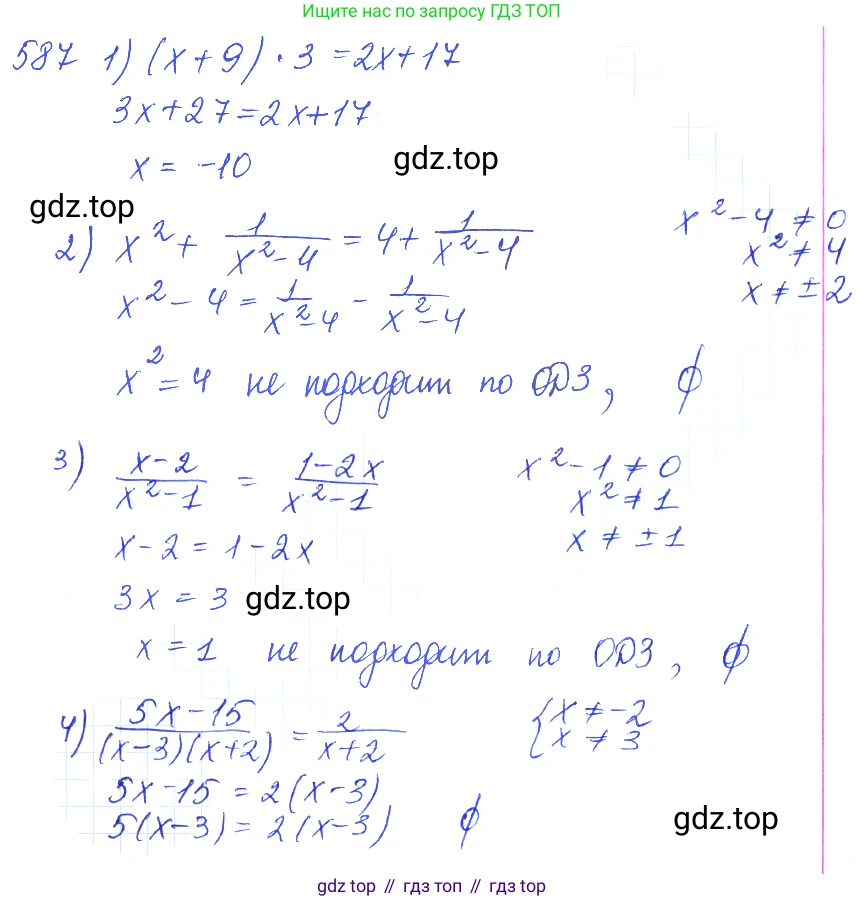 Ищите нас по запросу ГДЗ ТОП
587 1) (x+9)·3=2x+17
3x+27=2x+17
x = -10
gdz.top
gdz.top
2) x²+ 1/(x²-4) = 4+ 1/(x²-4)
x²-4≠0
x²≠4
x≠±2
x²-4= 1/(x²-4) - 1/(x²-4)
x²=4 не подходит по ОДЗ, ∅
3) (x-2)/(x²-1) = (1-2x)/(x²-1)
x²-1≠0
x²≠1
x≠±1
x-2=1-2x
3x=3
gdz.top
x=1 не подходит по ОДЗ, ∅
4) (5x-15)/((x-3)(x+2)) = 2/(x+2)
{x≠-2
x≠3
5x-15=2(x-3)
5(x-3)=2(x-3) ∅
gdz.top
gdz top // гдз топ // gdz top